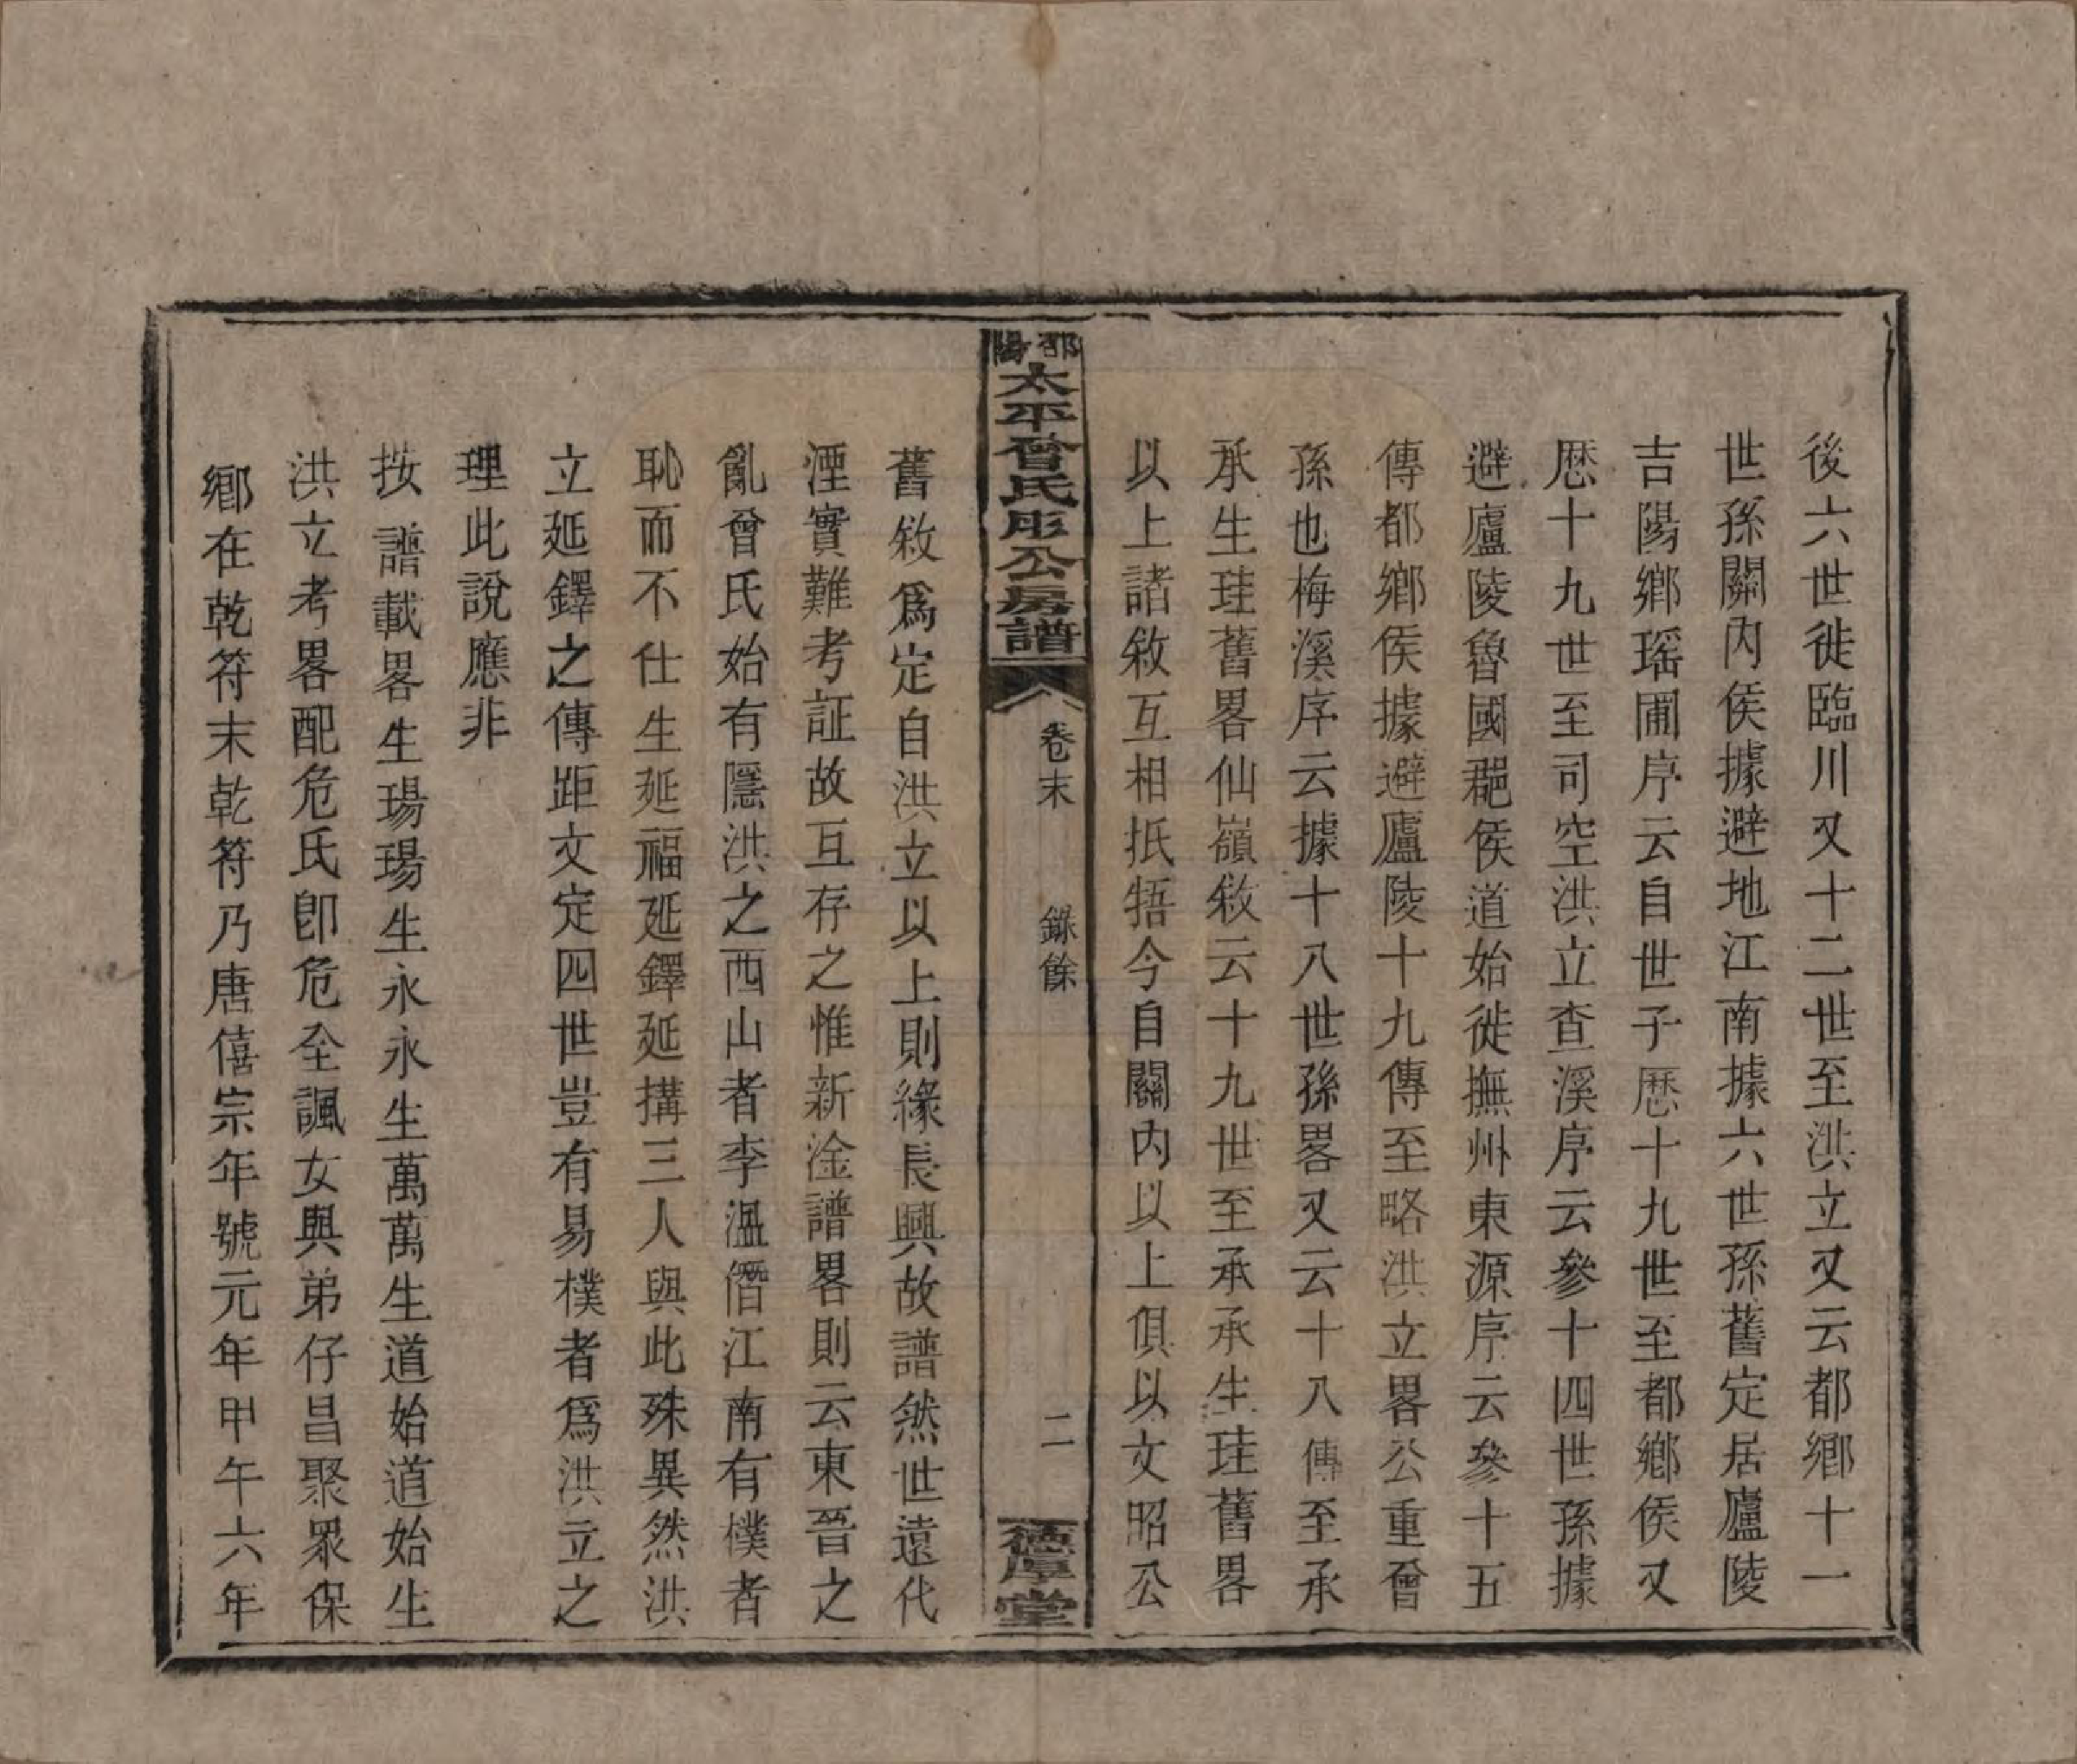 後六世徙臨川又十二世至洪立又云都鄉十一
世孫關內侯據避地江南據六世孫舊定居廬陵
吉陽鄉瑶圃序云自世子歴十九世至都鄉侯又
歴十九世至司空洪立查溪序云參十四世孫據
避廬陵魯國郡侯道始徙撫州東源序云參十五
傳都鄉侯據避廬陵十九傳至略洪立畧公重曾
孫也梅溪序云據十八世孫畧又云十八傳至承
承生珪舊畧仙嶺敘云十九世至承承生珪舊畧
以上諸敘互相抵牾今自關內以上俱以文昭公
邵陽太平曾氏彤公房譜
卷末
錄餘
二
德厚堂
舊敘爲定自洪立以上則緣長興故譜然世遠代
湮實難考証故互存之惟新淦譜畧則云東晉之
亂曾氏始有隱洪之西山者李溫僭江南有樸者
恥而不仕生延福延鐸延搆三人與此殊異然洪
立延鐸之傳距文定四世豈有易樸者爲洪立之
理此說應非
按譜載畧生瑒瑒生永永生萬萬生道始道始生
洪立考畧配危氏卽危全諷女與弟仔昌聚眾保
鄉在乾符末乾符乃唐僖宗年號元年甲午六年